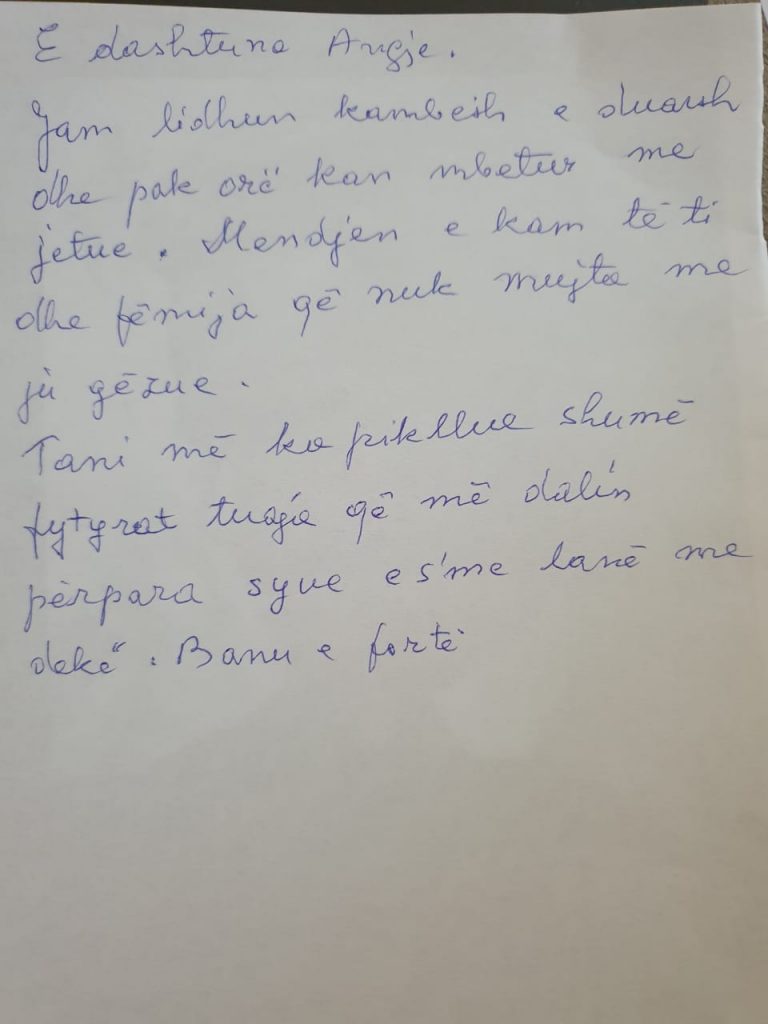 E dashtuna Angje.
Jam lidhun kambesh e duarsh
dhe pak orë kan mbetur me
jetue. Mendjen e kam të ti
dhe fëmija që nuk mujta me
ju gëzue.
Tani më ka pikllue shumë
fytyrat tuaja që më dalin
përpara syve e s'me lanë me
dekë". Banu e fortë